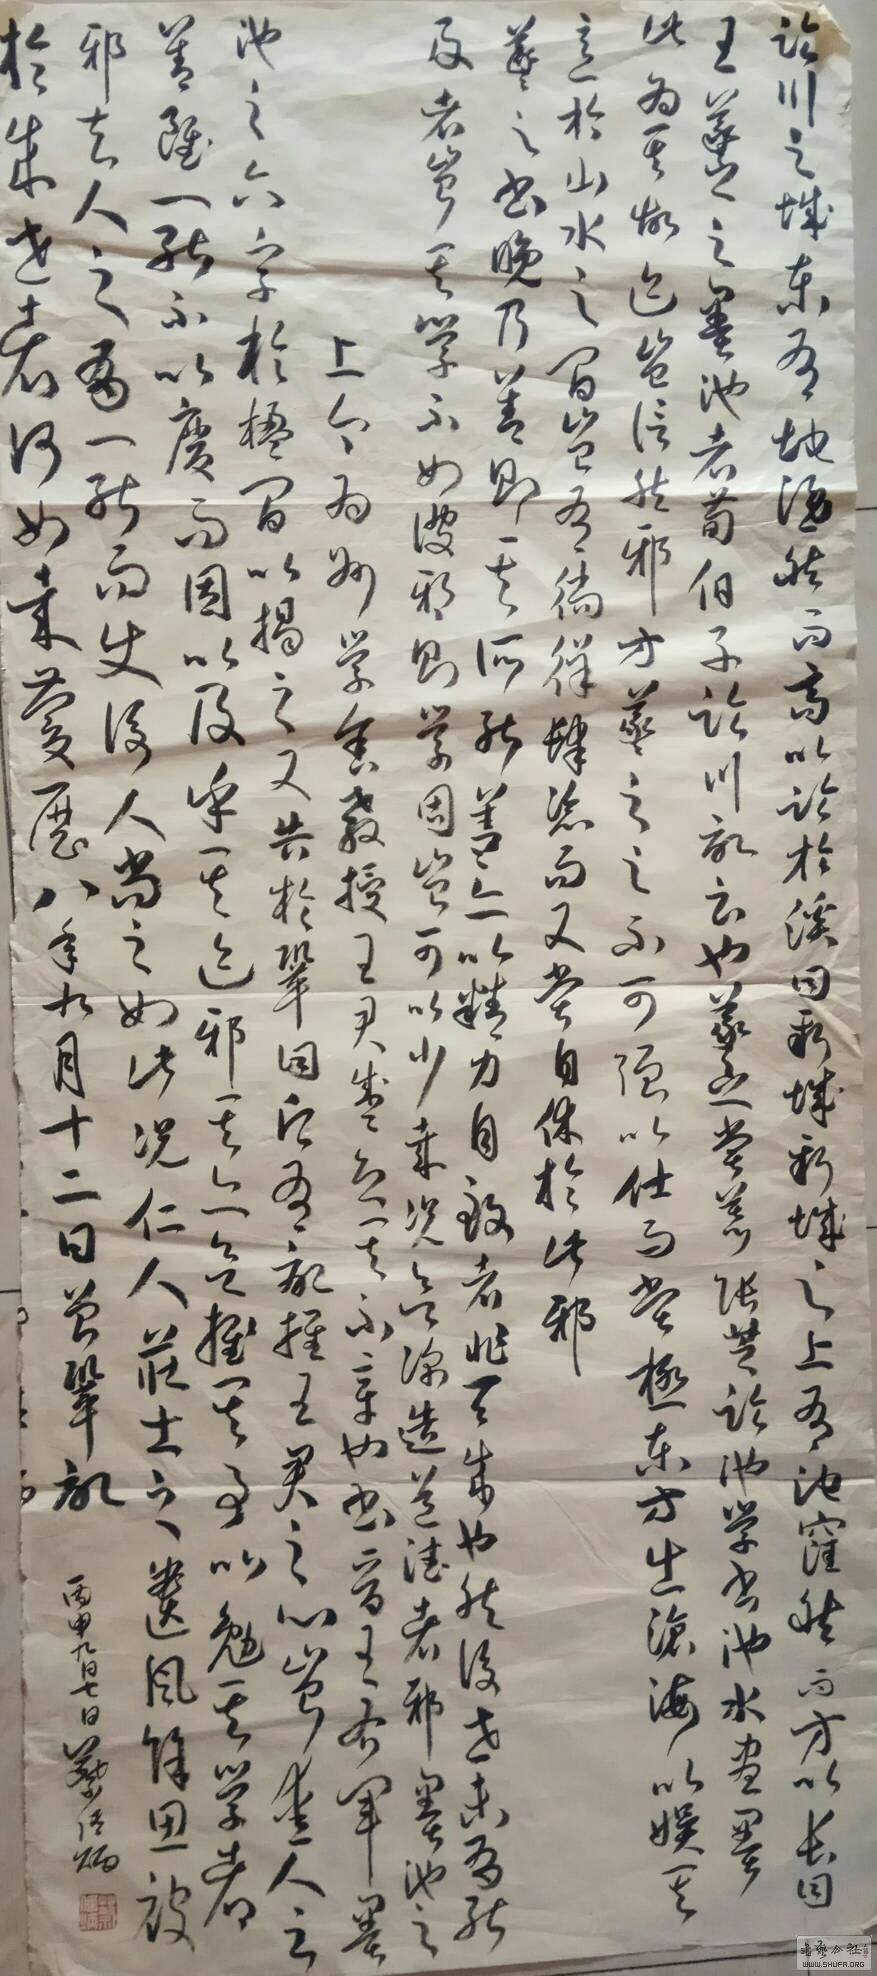 临川之城东有地隐然而高以临於溪曰新城新城之上有池窪然而方以长曰
王羲之之墨池者荀伯子临川记云也羲之尝慕张芝临池学书池水尽墨
此为其故迹岂信然邪方羲之之不可强以仕而尝极东方出沧海以娱其
意於山水之间岂有徜徉肆恣而又尝自休於此邪
羲之之书晚乃善则其所能盖亦以精力自致者非天成也然后世未有能
及者岂其学不如彼邪则学固岂可以少哉况欲深造道德者邪墨池之
上今为州学舍教授王君盛恐其不章也书晋王右军墨
池之六字於楹间以揭之又告於巩曰愿有记推王君之心岂爱人之
善虽一能不以废而因以及乎其迹邪其亦欲推其事以勉其学者
邪夫人之有一能而使后人尚之如此况仁人莊士之遗风余思被
於来世者何如哉庆历八年九月十二日曾巩记
丙申九月七日蔡
书艺公社
WWW.SHUFA.ORG